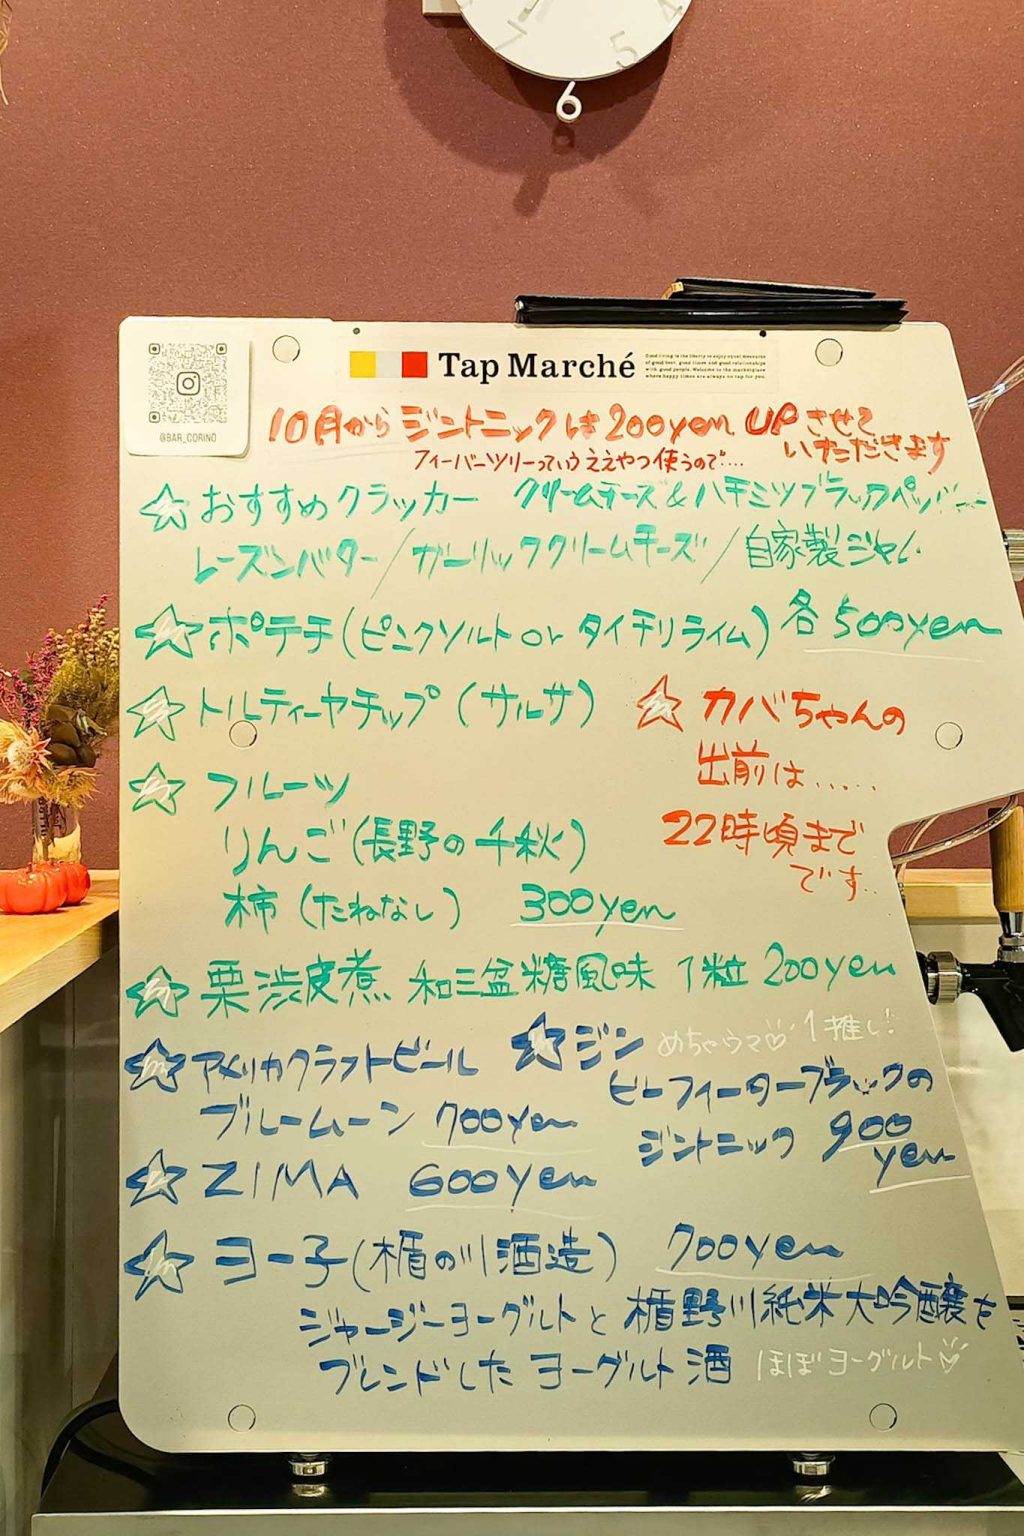 6
5
7
4
Tap Marché
Good living is the liberty to enjoy equal measures
of good beer, good times and good relationships
with good people. Welcome to the marketplace
where happy times are always on tap for you.
@BAR_CORINO
10月から ジントニックは 200yen UP させて
いただきます
フィーバーツリーっていうええやつ使うので....
おすすめクラッカー クリームチーズ&ハチミツブラックペッパー
レーズンバター/ガーリッククリームチーズ/自家製ジャム
ポテチ(ピンクソルト or タイチリライム) 各500yen
トルティーヤチップ (サルサ)
カバちゃんの
出前は.....
22時頃まで
です..
フルーツ
りんご(長野の千秋)
柿 (たねなし) 300yen
栗渋皮煮 和三盆糖風味 1粒 200yen
アメリカクラフトビール
ブルームーン 700yen
ジン めちゃウマ♡ 1推し!
ビーフィーターブラックの
ジントニック 900
yen
ZIMA 600yen
ヨー子(楯の川酒造) 700yen
ジャージーヨーグルトと楯野川純米大吟醸を
ブレンドした ヨーグルト酒 ほぼヨーグルト♡